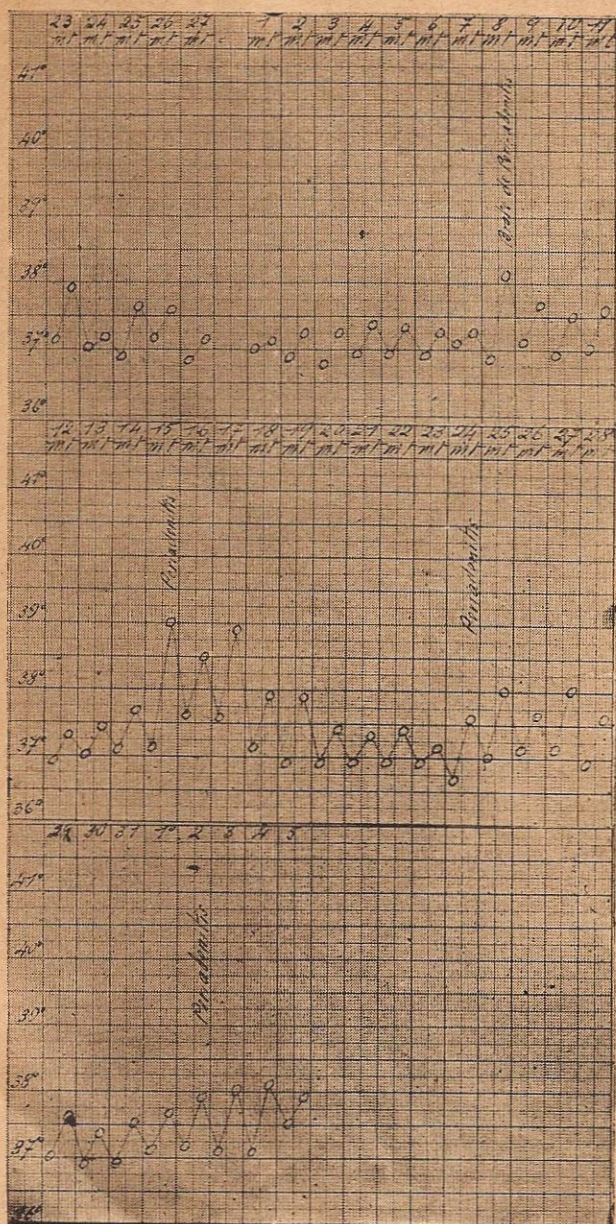 23 24 25 26 27 1 2 3 4 5 6 7 8 9 10 11
m t m t m t m t m t m t m t m t m t m t m t m t m t m t m t m t
41°
40°
39°
38°
37°
36°
de Periadenitis
12 13 14 15 16 17 18 19 20 21 22 23 24 25 26 27 28
m t m t m t m t m t m t m t m t m t m t m t m t m t m t m t m t m
41°
40°
39°
38°
37°
36°
Periadenitis
Periadenitis
29 30 31 1º 2 3 4 5
41°
40°
39°
38°
37°
36°
Periadenitis